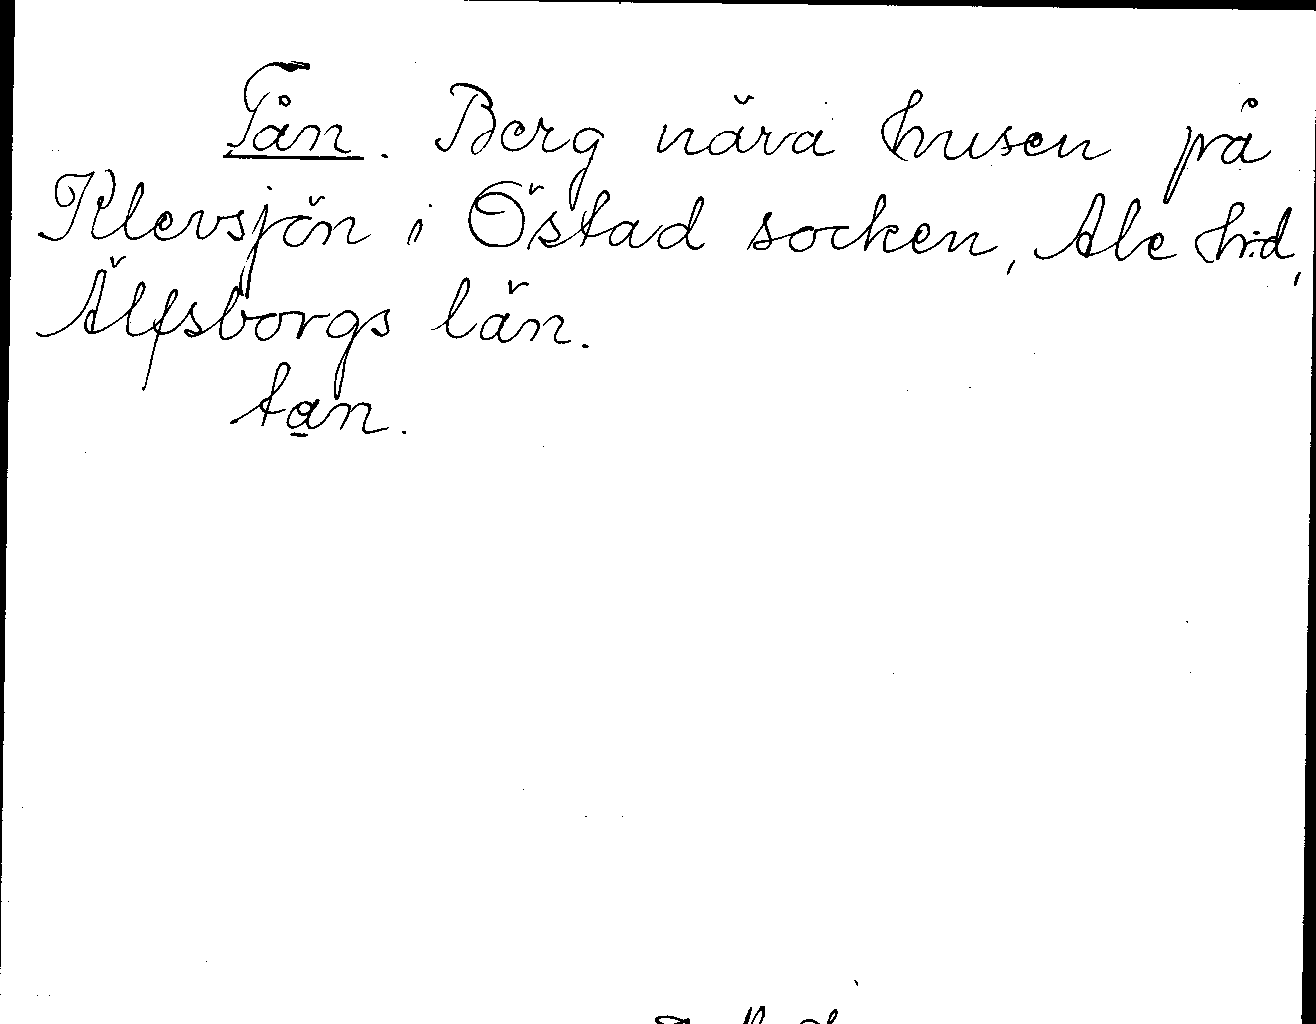 Tån. Berg nära husen på
Klevsjön i Östad socken, Ale h:d,
Älfsborgs län.
ta̲n.